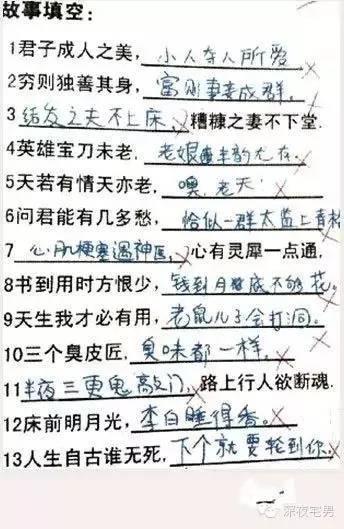 故事填空：
1君子成人之美，小人夺人所爱。
2穷则独善其身，富则妻妾成群。
3结发之夫不上床，糟糠之妻不下堂.
4英雄宝刀未老，老娘风韵尤存。
5天若有情天亦老，噢，老天
6问君能有几多愁，恰似一群太监上青楼
7心肌梗塞遇神医，心有灵犀一点通，
8书到用时方恨少，钱到月底不够花。
9天生我才必有用，老鼠儿子会打洞。
10三个臭皮匠，臭味都一样。
11半夜三更鬼敲门，路上行人欲断魂.
12床前明月光，李白睡得香。
13人生自古谁无死，下个就要轮到你。
深夜宅男